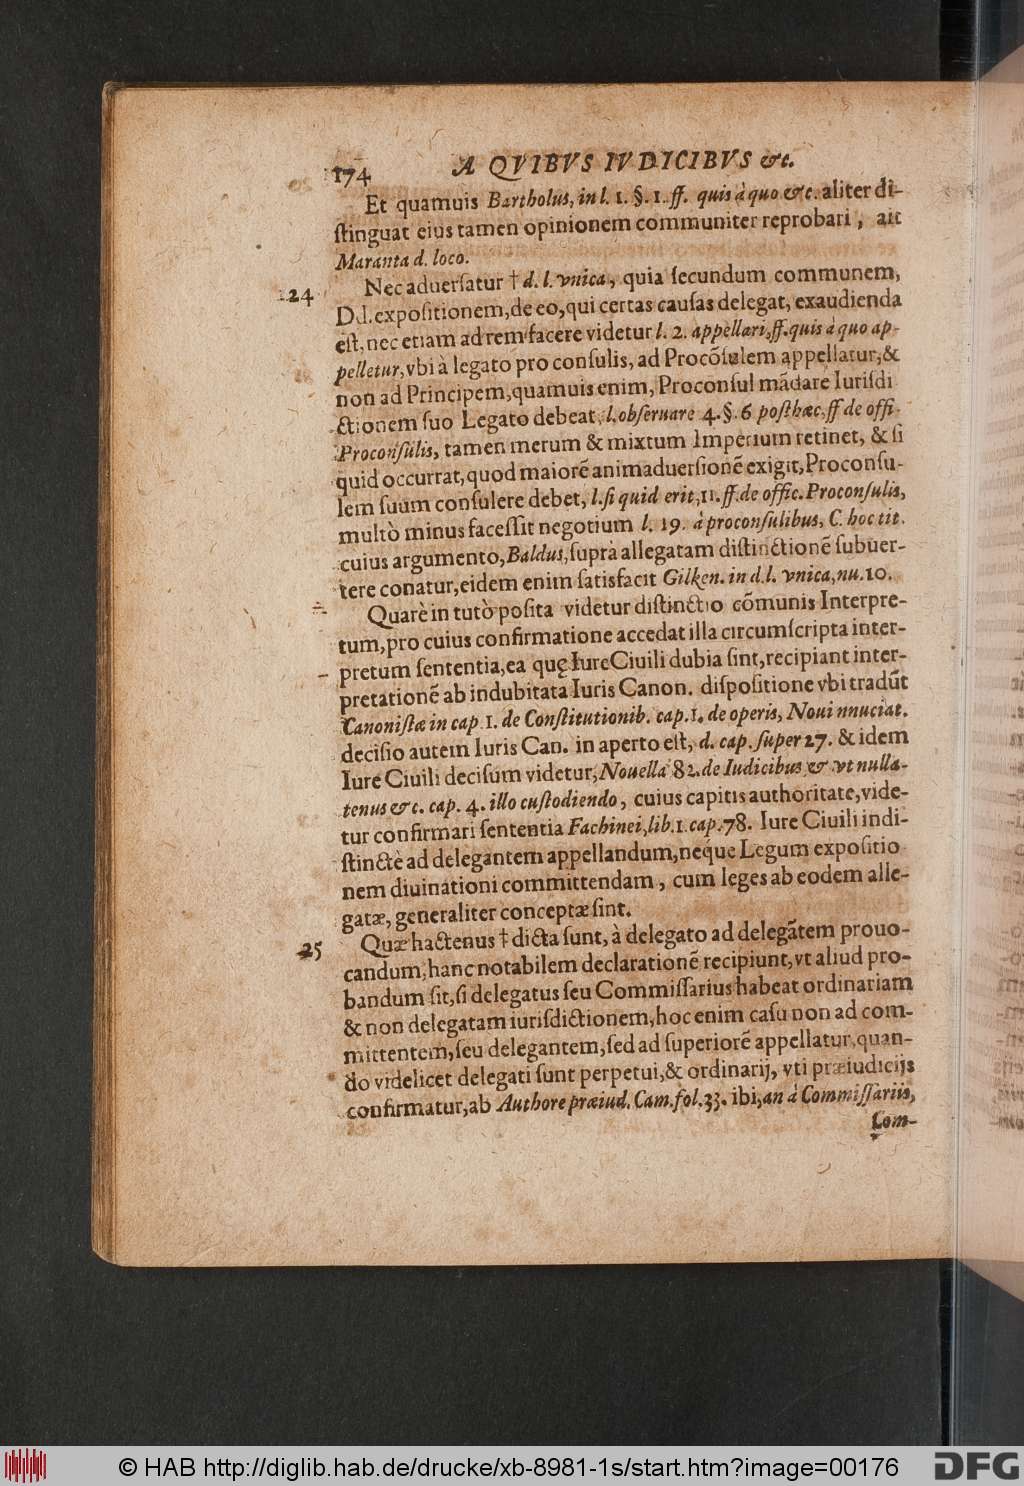 174 A QVIBVS IVDICIBVS &c.
Et quamuis Bartholus, in l. 1. §. 1. ff. quis à quo &c. aliter di-
ſtinguat eius tamen opinionem communiter reprobari, ait
Maranta d. loco.
24 Nec aduerſatur † d. l. vnica, quia ſecundum communem,
Dd. expoſitionem, de eo, qui certas cauſas delegat, exaudienda
eſt, nec etiam ad rem facere videtur l. 2. appellari, ff. quis à quo ap-
pelletur, vbi à legato pro conſulis, ad Procõſulem appellatur, &
non ad Principem, quamuis enim, Proconſul mãdare Iuriſdi
ctionem ſuo Legato debeat, l. obſeruare 4. §. 6 poſt hæc, ff de offi.
Proconſulis, tamen merum & mixtum Imperium retinet, & ſi
quid occurrat, quod maiorẽ animaduerſionẽ exigit, Proconſu-
lem ſuum conſulere debet, l. ſi quid erit, 11. ff. de offic. Proconſulis,
multò minus faceſſit negotium l. 19. à proconſulibus, C. hoc tit.
cuius argumento, Baldus, ſuprà allegatam diſtinctionẽ ſubuer-
tere conatur, eidem enim ſatisfacit Gilken. in d. l. vnica, nu. 10.
Quarè in tutò poſita videtur diſtinctio cõmunis Interpre-
tum, pro cuius confirmatione accedat illa circumſcripta inter-
pretum ſententia, ea quę Iure Ciuili dubia ſint, recipiant inter-
pretationẽ ab indubitata Iuris Canon. diſpoſitione vbi tradũt
Canoniſtæ in cap 1. de Conſtitutionib. cap. 1. de operis, Noui nnuciat.
deciſio autem Iuris Can. in aperto eſt, d. cap. ſuper 27. & idem
Iure Ciuili deciſum videtur, Nouella 82. de Iudicibus & vt nulla-
tenus &c. cap. 4. illo cuſtodiendo, cuius capitis authoritate, vide-
tur confirmari ſententia Fachinei, lib. 1. cap. 78. Iure Ciuili indi-
ſtinctè ad delegantem appellandum, neque Legum expoſitio
nem diuinationi committendam, cum leges ab eodem alle-
gatæ, generaliter conceptæ ſint.
25 Quæ hactenus † dicta ſunt, à delegato ad delegãtem prouo-
candum, hanc notabilem declarationẽ recipiunt, vt aliud pro-
bandum ſit, ſi delegatus ſeu Commiſſarius habeat ordinariam
& non delegatam iuriſdictionem, hoc enim caſu non ad com-
mittentem, ſeu delegantem, ſed ad ſuperiorẽ appellatur, quan-
do videlicet delegati ſunt perpetui, & ordinarij, vti præiudicijs
confirmatur, ab Authore præiud. Cam. fol. 33. ibi, an à Commiſſariis,
Com-
© HAB http://diglib.hab.de/drucke/xb-8981-1s/start.htm?image=00176
DFG